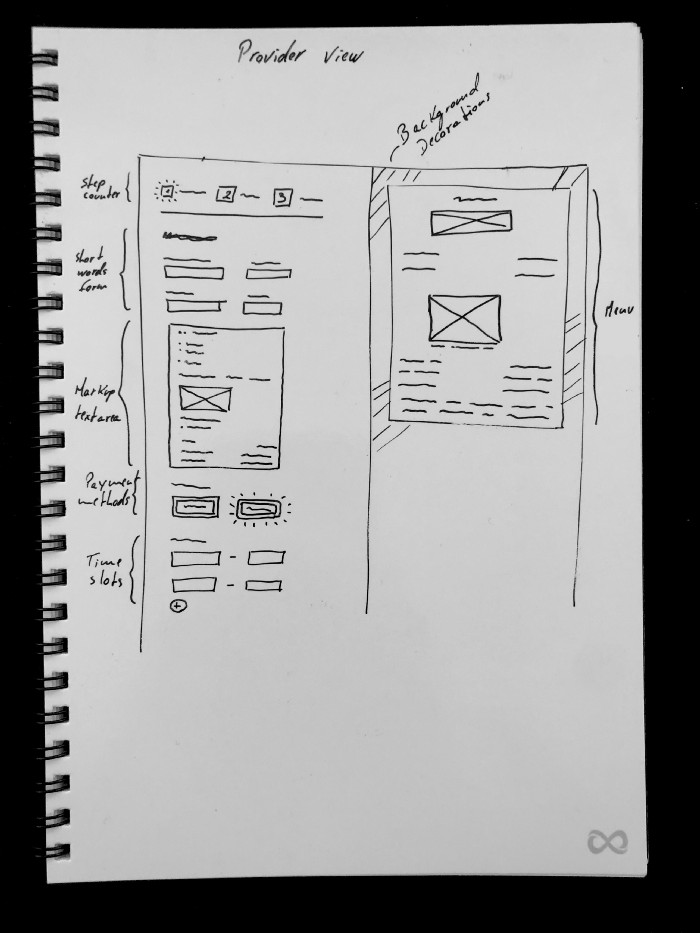 Provider View
Background
Decorations
Step
counter
1
2
3
Short
words
form
Markup
textarea
Menu
Payment
methods
Time
slots